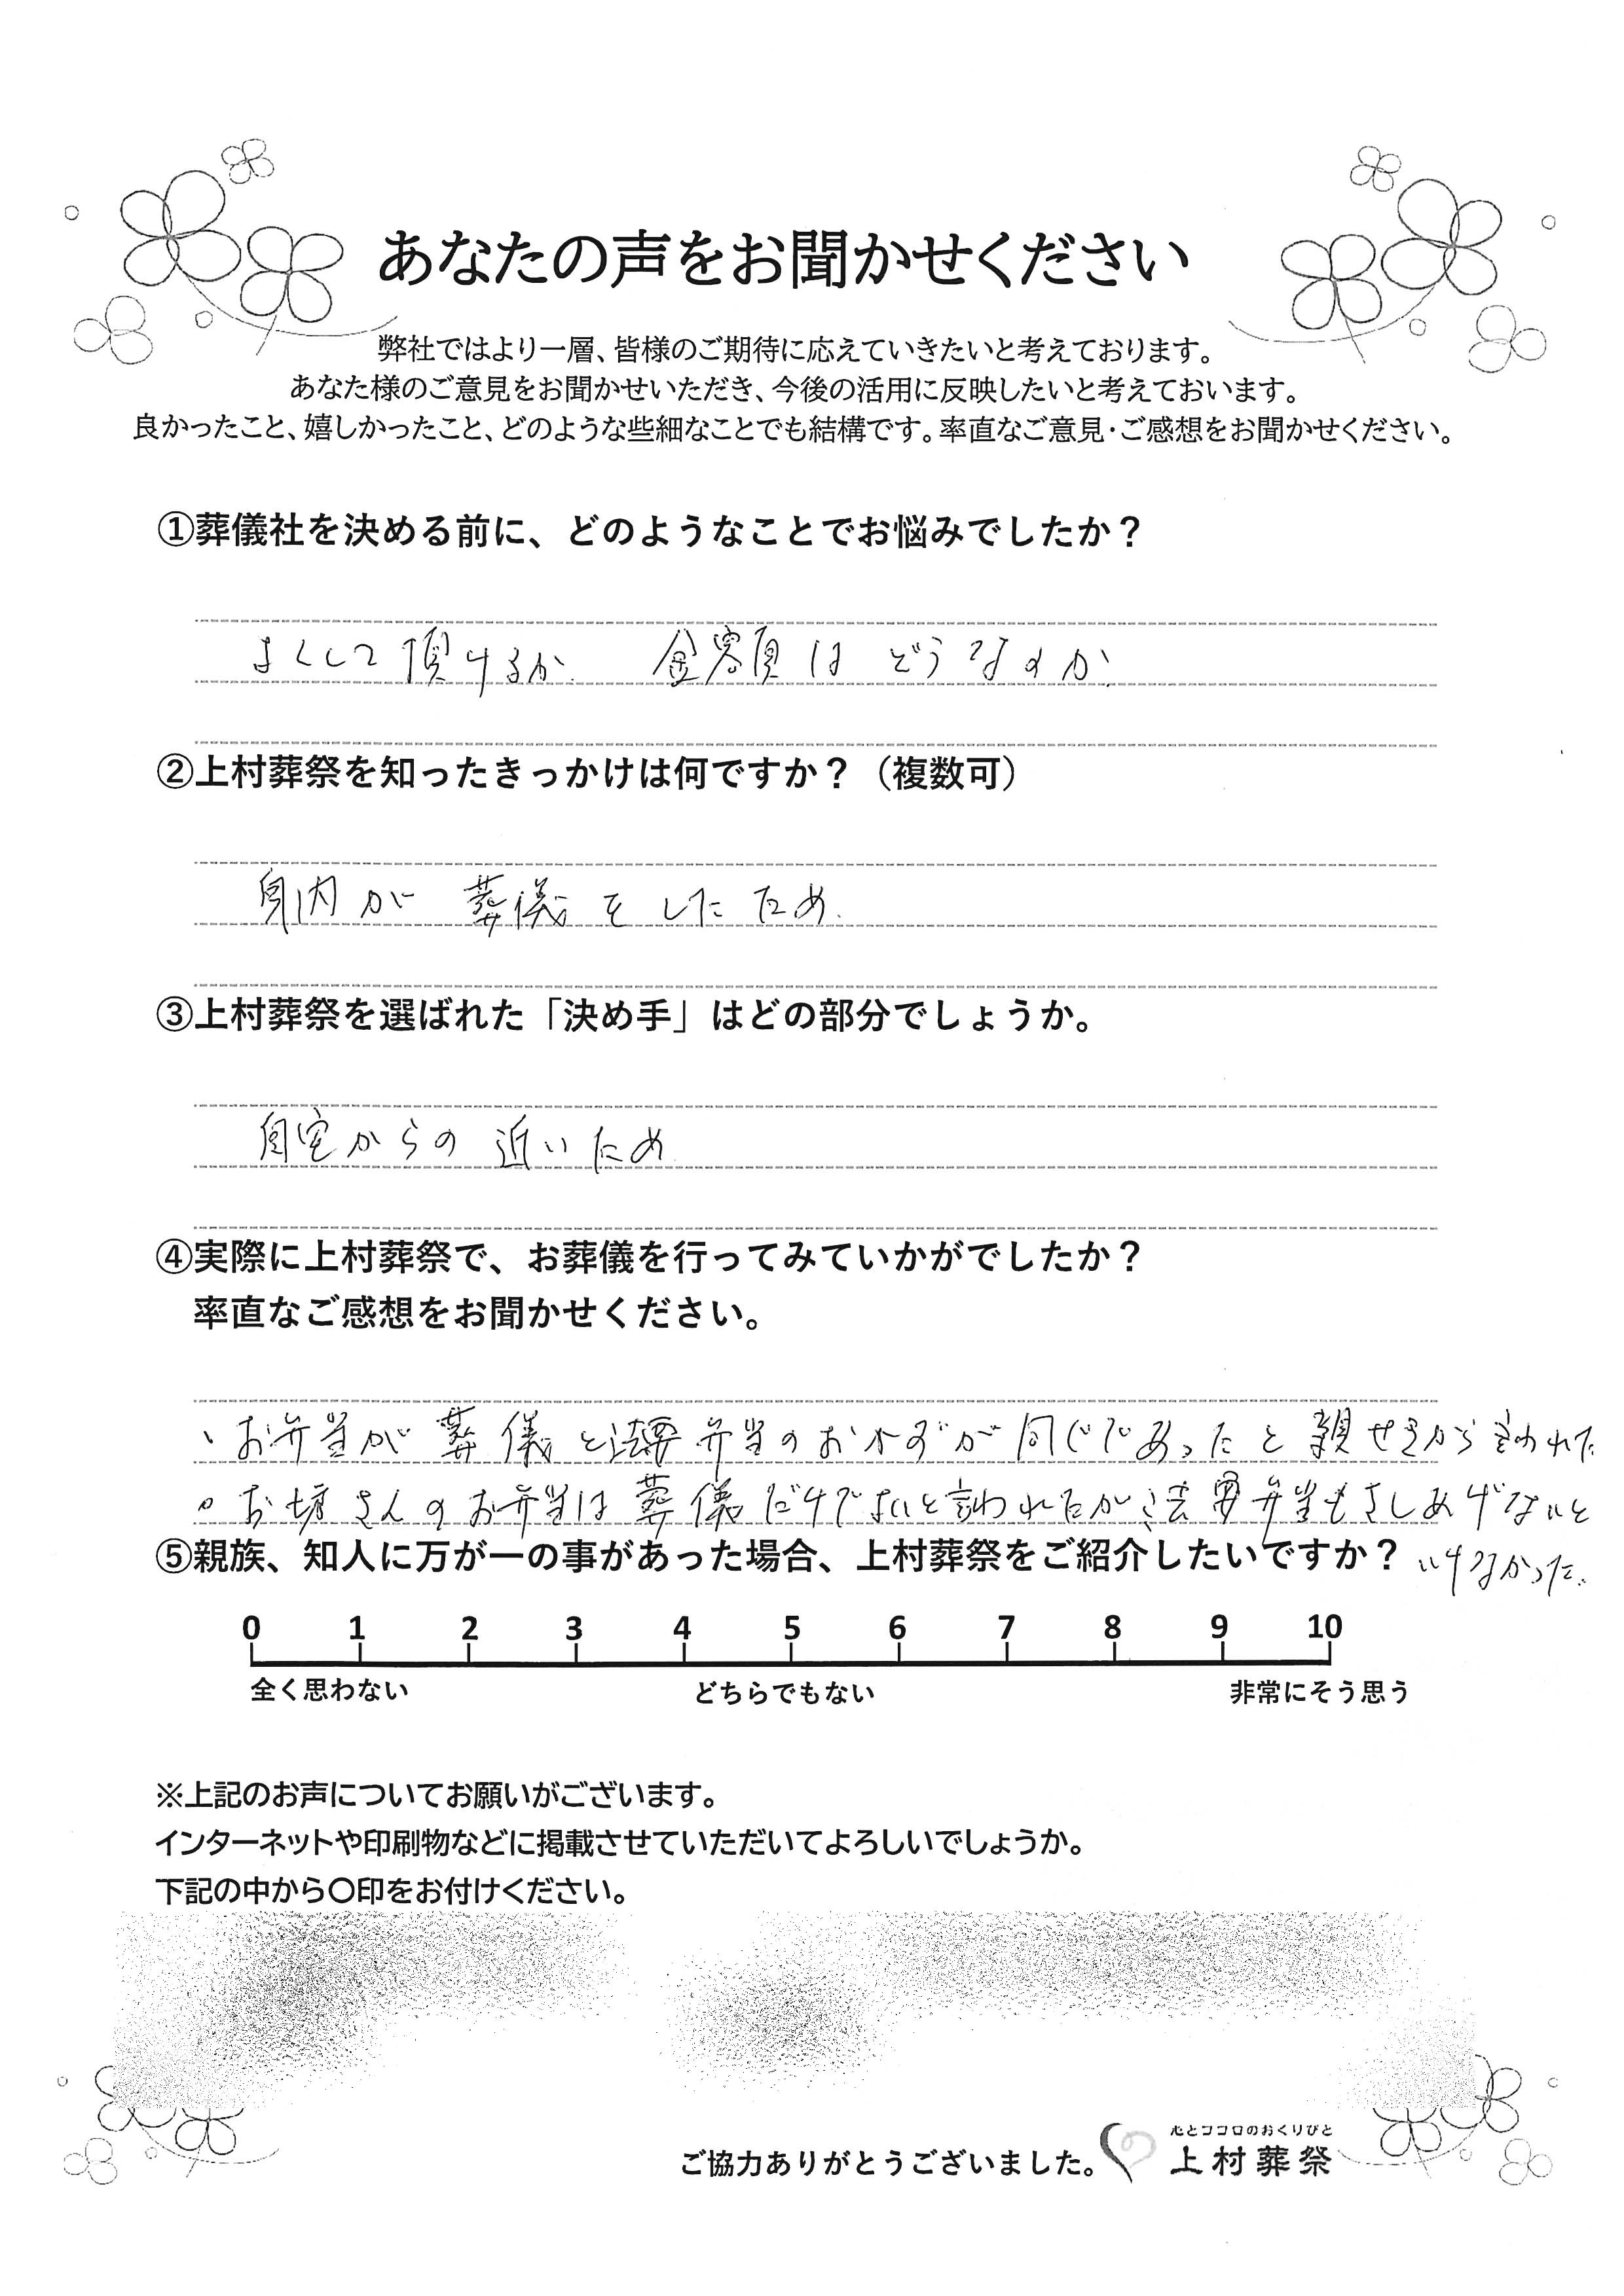 あなたの声をお聞かせください
弊社ではより一層、皆様のご期待に応えていきたいと考えております。
あなた様のご意見をお聞かせいただき、今後の活用に反映したいと考えておいます。
良かったこと、嬉しかったこと、どのような些細なことでも結構です。率直なご意見・ご感想をお聞かせください。
①葬儀社を決める前に、どのようなことでお悩みでしたか？
よくして頂けるか. 金額はどうなのか.
②上村葬祭を知ったきっかけは何ですか？（複数可）
身内が葬儀をしたため.
③上村葬祭を選ばれた「決め手」はどの部分でしょうか。
自宅からの近いため
④実際に上村葬祭で、お葬儀を行ってみていかがでしたか？
率直なご感想をお聞かせください。
、お弁当が葬儀と法要弁当のおかずが同じであったと親せきから言われた
。お坊さんのお弁当は葬儀だけでよいと言われたが法要弁当もさしあげないと
⑤親族、知人に万が一の事があった場合、上村葬祭をご紹介したいですか？
いけなかった.
0 1 2 3 4 5 6 7 8 9 10
全く思わない どちらでもない 非常にそう思う
※上記のお声についてお願いがございます。
インターネットや印刷物などに掲載させていただいてよろしいでしょうか。
下記の中から〇印をお付けください。
心とココロのおくりびと
ご協力ありがとうございました。 上村葬祭